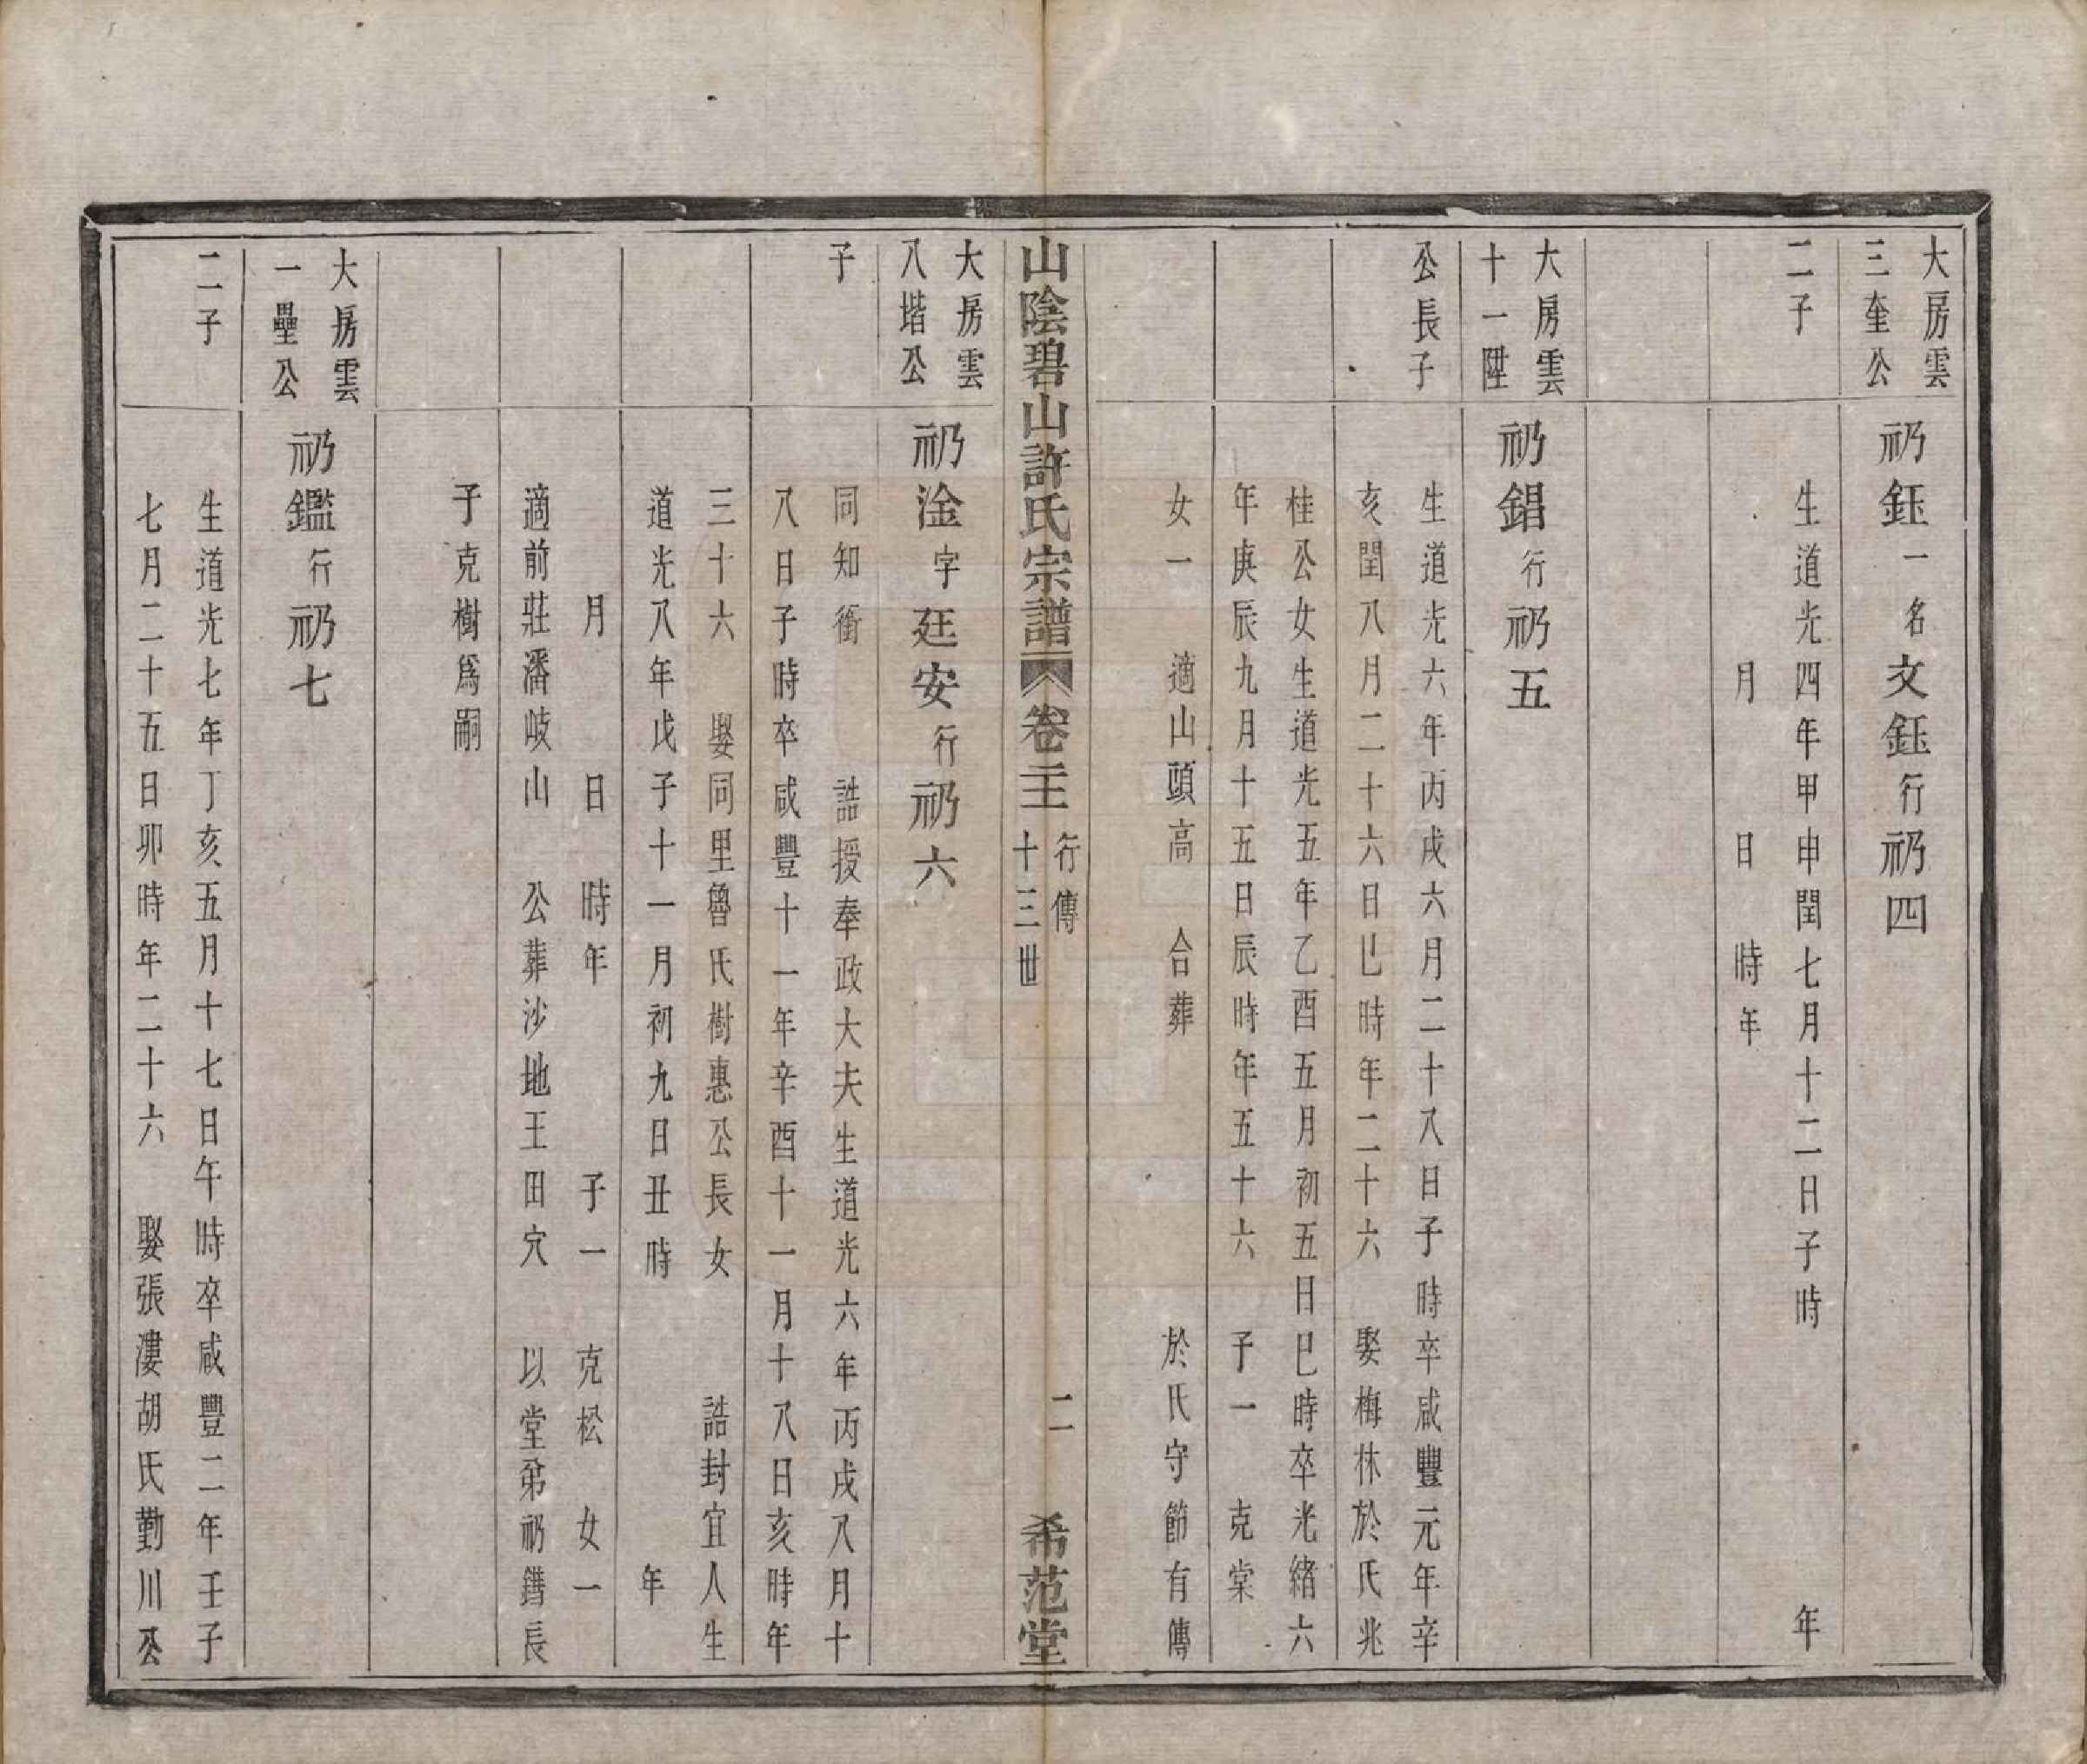 大房雲
三奎公
二子
礽鈺一名文鈺行礽四
生道光四年甲申閏七月十二日子時　年
月　日　時年
大房雲
十一陞
公長子
礽錩行礽五
生道光六年丙戌六月二十八日子時卒咸豐元年辛
亥閏八月二十六日巳時年二十六　娶梅林於氏兆
桂公女生道光五年乙酉五月初五日巳時卒光緒六
年庚辰九月十五日辰時年五十六　子一　克棠
女一　適山頭高　合葬　於氏守節有傳
山陰碧山許氏宗譜　卷二十一　行傳　十三世　二　希范堂
大房雲
八堦公
子
礽淦字廷安行礽六
同知銜　誥授奉政大夫生道光六年丙戌八月十
八日子時卒咸豐十一年辛酉十一月十八日亥時年
三十六　娶同里魯氏樹惠公長女　誥封宜人生
道光八年戊子十一月初九日丑時　年
月　日　時年　子一　克松　女一
適前莊潘岐山　公葬沙地王田穴　以堂弟礽鐕長
子克樹爲嗣
大房雲
一壘公
二子
礽鑑行礽七
生道光七年丁亥五月十七日午時卒咸豐二年壬子
七月二十五日卯時年二十六　娶張漊胡氏勤川公